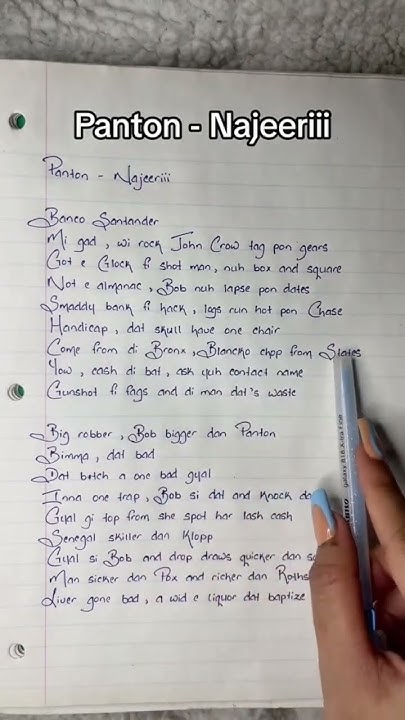 Panton - Najeeriii
Panton - Najeeriii
Banco Santander
Mi gad, wi rock John Crow tag pon gears
Got e Glock fi shot man, nuh box and square
Not e almanac, Bob nuh lapse pon dates
Smaddy bank fi hack, lags run hot pon Chase
Handicap, dat skull have one chair
Come from di Bronx, Blancko chop from States
Yow, cash di bat, ask yuh contact name
Gunshot fi fags and di man dat's waste
Big robber, Bob bigger dan Panton
Bimma, dat bad
Dat bitch a one bad gyal
Inna one trap, Bob si dat and knock da
Gyal gi top from she spot har lash cash
Senegal skiller dan Klopp
Gyal si Bob and drop draws quicker dan
Man sicker dan Pox and richer dan Roths
Liver gone bad, a wid e liquor dat baptize